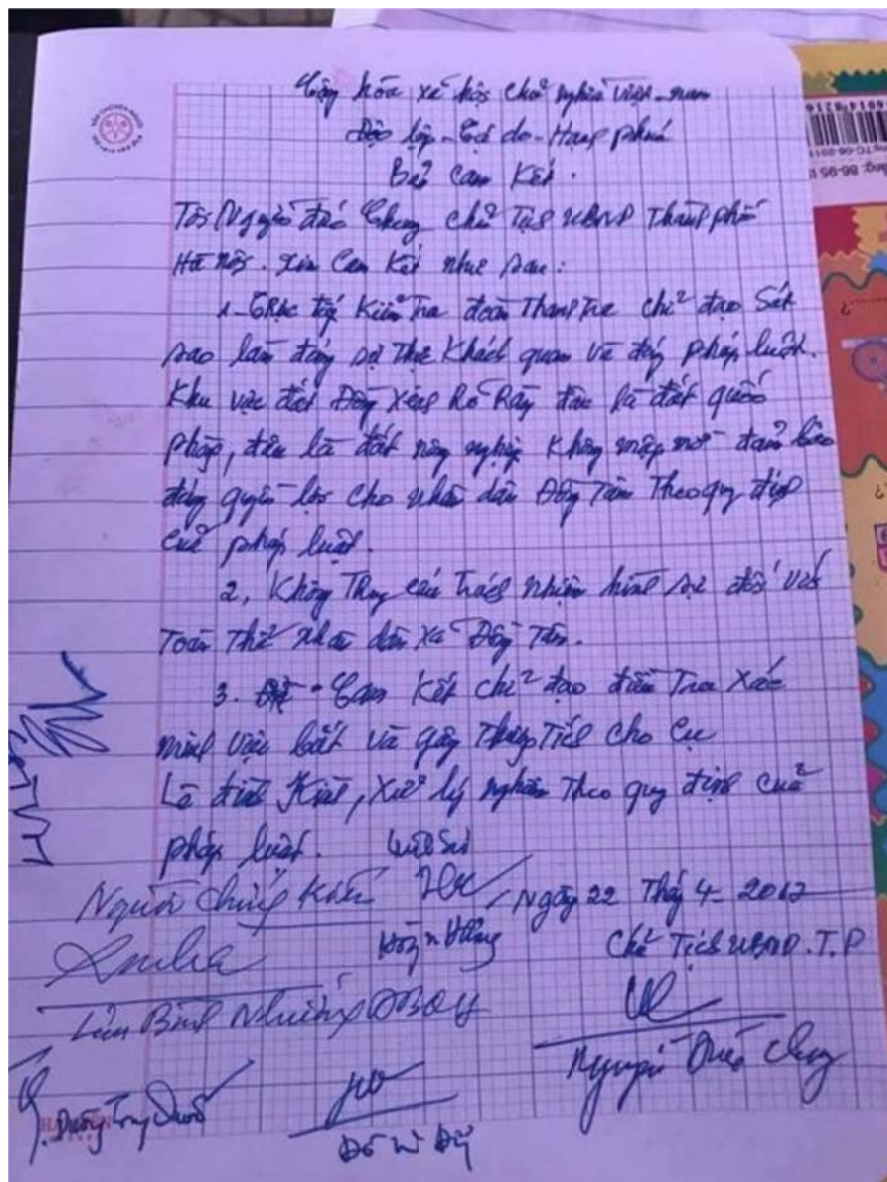 Cộng hòa xã hội chủ nghĩa việt-nam
Độc lập-Tự do-Hạnh phúc
Bản Cam Kết.
Tôi Nguyễn đức Chung chủ Tịch UBND Thành phố
Hà nội. xin Cam Kết như sau:
1-Trực tiếp Kiểm Tra đoàn Thanh Tra chỉ đạo Sát
sao làm đúng sự Thật Khách quan và đúng pháp luật.
Khu vực đất Đồng Xênh Rõ Ràng đâu là đất quốc
phòng, đâu là đất nông nghiệp Không mập mờ đảm bảo
đúng quyền lợi cho nhân dân Đồng Tâm Theo quy định
của pháp luật.
2, Không Truy cứu Trách nhiệm hình sự đối với
Toàn Thể nhân dân Xã Đồng Tâm.
3. Cam Kết chỉ đạo điều Tra Xác
minh việc bắt và gây Thương Tích cho Cụ
Lê đình Kình, Xử lý nghiêm Theo quy định của
pháp luật.
Người chứng kiến Ngày 22 Tháng 4-2017
Chủ Tịch UBND.T.P
Lưu Bình Nhưỡng ĐBQH
Nguyễn Đức Chung
Dương Trung Quốc
Đỗ